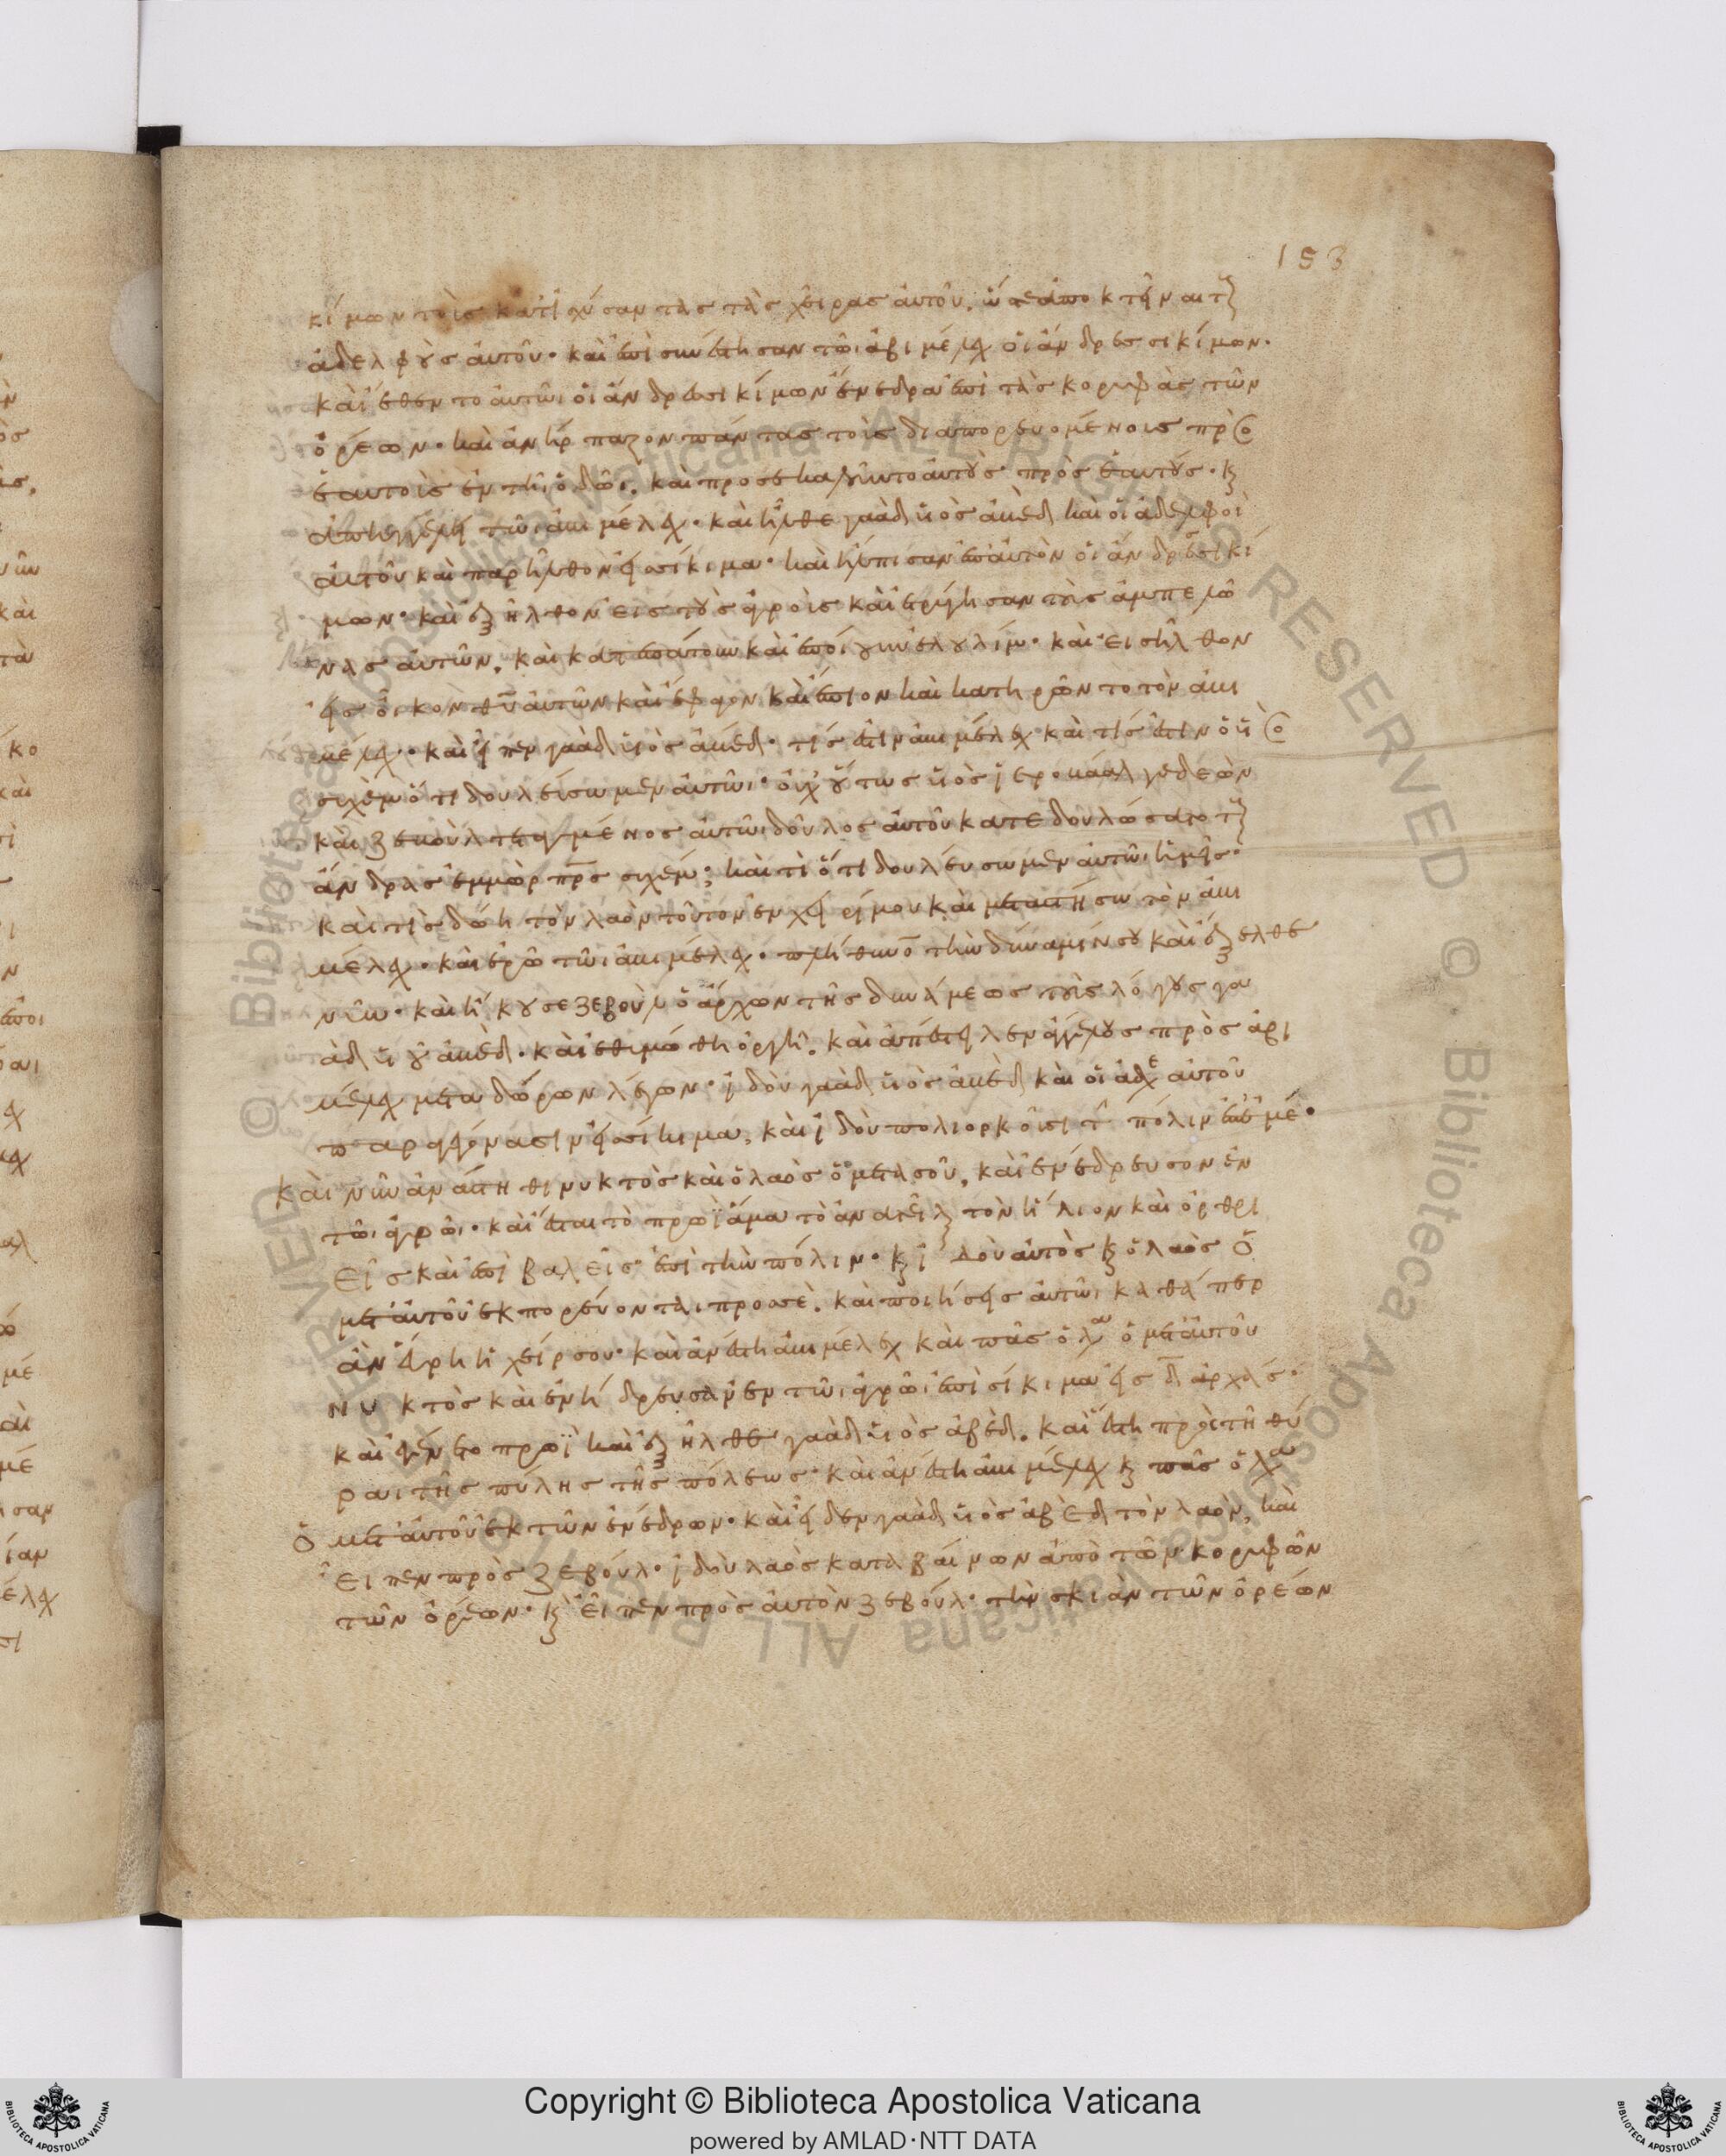 153
κίμων τοῖς κατϊσχύσαντας τὰς χεῖρας ἀυτοῦ. ὥστε ἀποκτεῖναι τ(οὺς)
ἀδελφοὺς ἀυτοῦ· καὶ ἐπισυνέστησαν τῶι ἀβιμέλεχ οἱ ἄνδρες σικίμων·
καὶ ἔθεντο ἀυτῶι οἱ ἄνδρες σικίμων ἔνεδρα ἐπὶ τὰς κορυφὰς τῶν
ὀρέων· καὶ ἀνήρπαζον πάντας τοῖς διαπορευομένοις πρὸ
ἑαυτοῖς ἐν τῆι ὁδῶι. καὶ προσεκαλοῦντο ἀυτοὺς πρὸς ἑαυτούς· κ(αὶ)
ἀπηγγέλει τῶι ἀβιμέλεχ· καὶ ἦλθε γαὰδ υἱὸς ἀβὲδ καὶ οἱ ἀδελφοὶ
ἀυτοῦ καὶ παρῆλθον εἰς σίκιμα· καὶ ἤλπισαν ἐπ ἀυτὸν οἱ ἄνδρες σικί
μων· καὶ ἐξῆλθον εἰς τοὺς ἀγροὺς καὶ ἐτρύγησαν τοὺς ἀμπελῶ
νας ἀυτῶν. καὶ κατεπάτουν καὶ ἐποίουν ἐλουλίμ· καὶ εἰσῆλθον
εἰς οἶκον θῦ ἀυτῶν καὶ ἔφαγον καὶ ἔπιον καὶ κατηρῶντο τὸν ἀβι
μέλεχ· καὶ εἶπεν γαὰδ υἱὸς ἀβέδ· τίς ἐστιν ἀβιμέλεχ καὶ τίς ἐστιν ὁ υἱὸ(ς)
συχὲμ ὅτι δουλεύσωμεν ἀυτῶι· οὐχ οὕτως υἱὸς ἱεροβάαλ γεδεὼν
καὶ ζεβοὺλ τεταγμένος ἀυτῶι δοῦλος ἀυτοῦ κατεδουλώσατο τ(οὺς)
ἄνδρας ἐμμὼρ πρς συχέμ; καὶ τί ὅτι δουλεύσωμεν ἀυτῶι ἡμεῖς·
καὶ τίς δώη τὸν λαὸν τοῦτον ἐν χειρί μου καὶ μεταστήσω τὸν ἀβι
μέλεχ· καὶ ἐρῶ τῶι ἀβιμέλεχ· πλήθυνον τὴν δύναμίν σου καὶ ἔξελθε
νῦν· καὶ ἤκουσε ζεβοὺλ ὁ ἄρχων τῆς δυνάμεως τοὺς λόγους γα
ὰδ υἱοῦ ἀβέδ· καὶ ἐθυμώθη ὀργῆ. καὶ ἀπέστειλεν ἀγγέλους πρὸς ἀβι
μέλεχ μετὰ δώρων λέγων· ἰδοὺ γαὰδ υἱὸς ἀβὲδ καὶ οἱ ἀδε ἀυτοῦ
παραγέγονασιν εἰς σίκιμα, καὶ ἰδοὺ πολιορκοῦσι τ(ὴν) πόλιν ἐπ ἐμέ·
Καὶ νῦν ἀνάστηθι νυκτὸς καὶ ὁ λαὸς ὁ μετὰ σοῦ. καὶ ἐνέδρευσον ἐν
τῶι ἀγρῶι· καὶ ἔσται τὸ πρωῒ ἅμα τὸ ἀνατεῖλ(αι) τὸν ἥλιον καὶ ὀρθρι
εῖς καὶ ἐπιβαλεῖς ἐπὶ τὴν πόλιν· κ(αὶ) ἰδοὺ ἀυτὸς κ(αὶ) ὁ λαὸς ὁ
μετ ἀυτοῦ ἐκπορεύονται προσσὲ. καὶ ποιήσεις ἀυτῶι καθάπερ
ἂν ἕυρη ἡ χείρ σου· καὶ ἀνέστη ἀβιμέλεχ καὶ πᾶς ὁ λα ὁ μετ ἀυτοῦ
νυκτὸς καὶ ἐνήδρευσαν ἐν τῶι ἀγρῶι ἐπὶ σίκιμα εἰς δ ἀρχάς·
καὶ ἐγένετο πρωῒ καὶ ἐξῆλθε γαὰδ υἱὸς ἀβέδ. καὶ ἔστη πρὸς τῆ θύ
ραι τῆς πύλης τῆς πόλεως· καὶ ἀνέστη ἀβιμέλεχ κ(αὶ) πᾶς ὁ λα
ὁ μετ ἀυτοῦ ἐκ τῶν ἐνέδρων· καὶ εἶδεν γαὰδ υἱὸς ἀβὲδ τὸν λαὸν, καὶ
εἶπεν πρὸς ζεβούλ· ἰδοὺ λαὸς καταβαίνων ἀπὸ τῶν κορυφῶν
τῶν ὀρέων· κ(αὶ) εἶπεν πρὸς ἀυτὸν ζεβούλ· τὴν σκιὰν τῶν ὀρέων
Copyright © Biblioteca Apostolica Vaticana
powered by AMLAD·NTT DATA